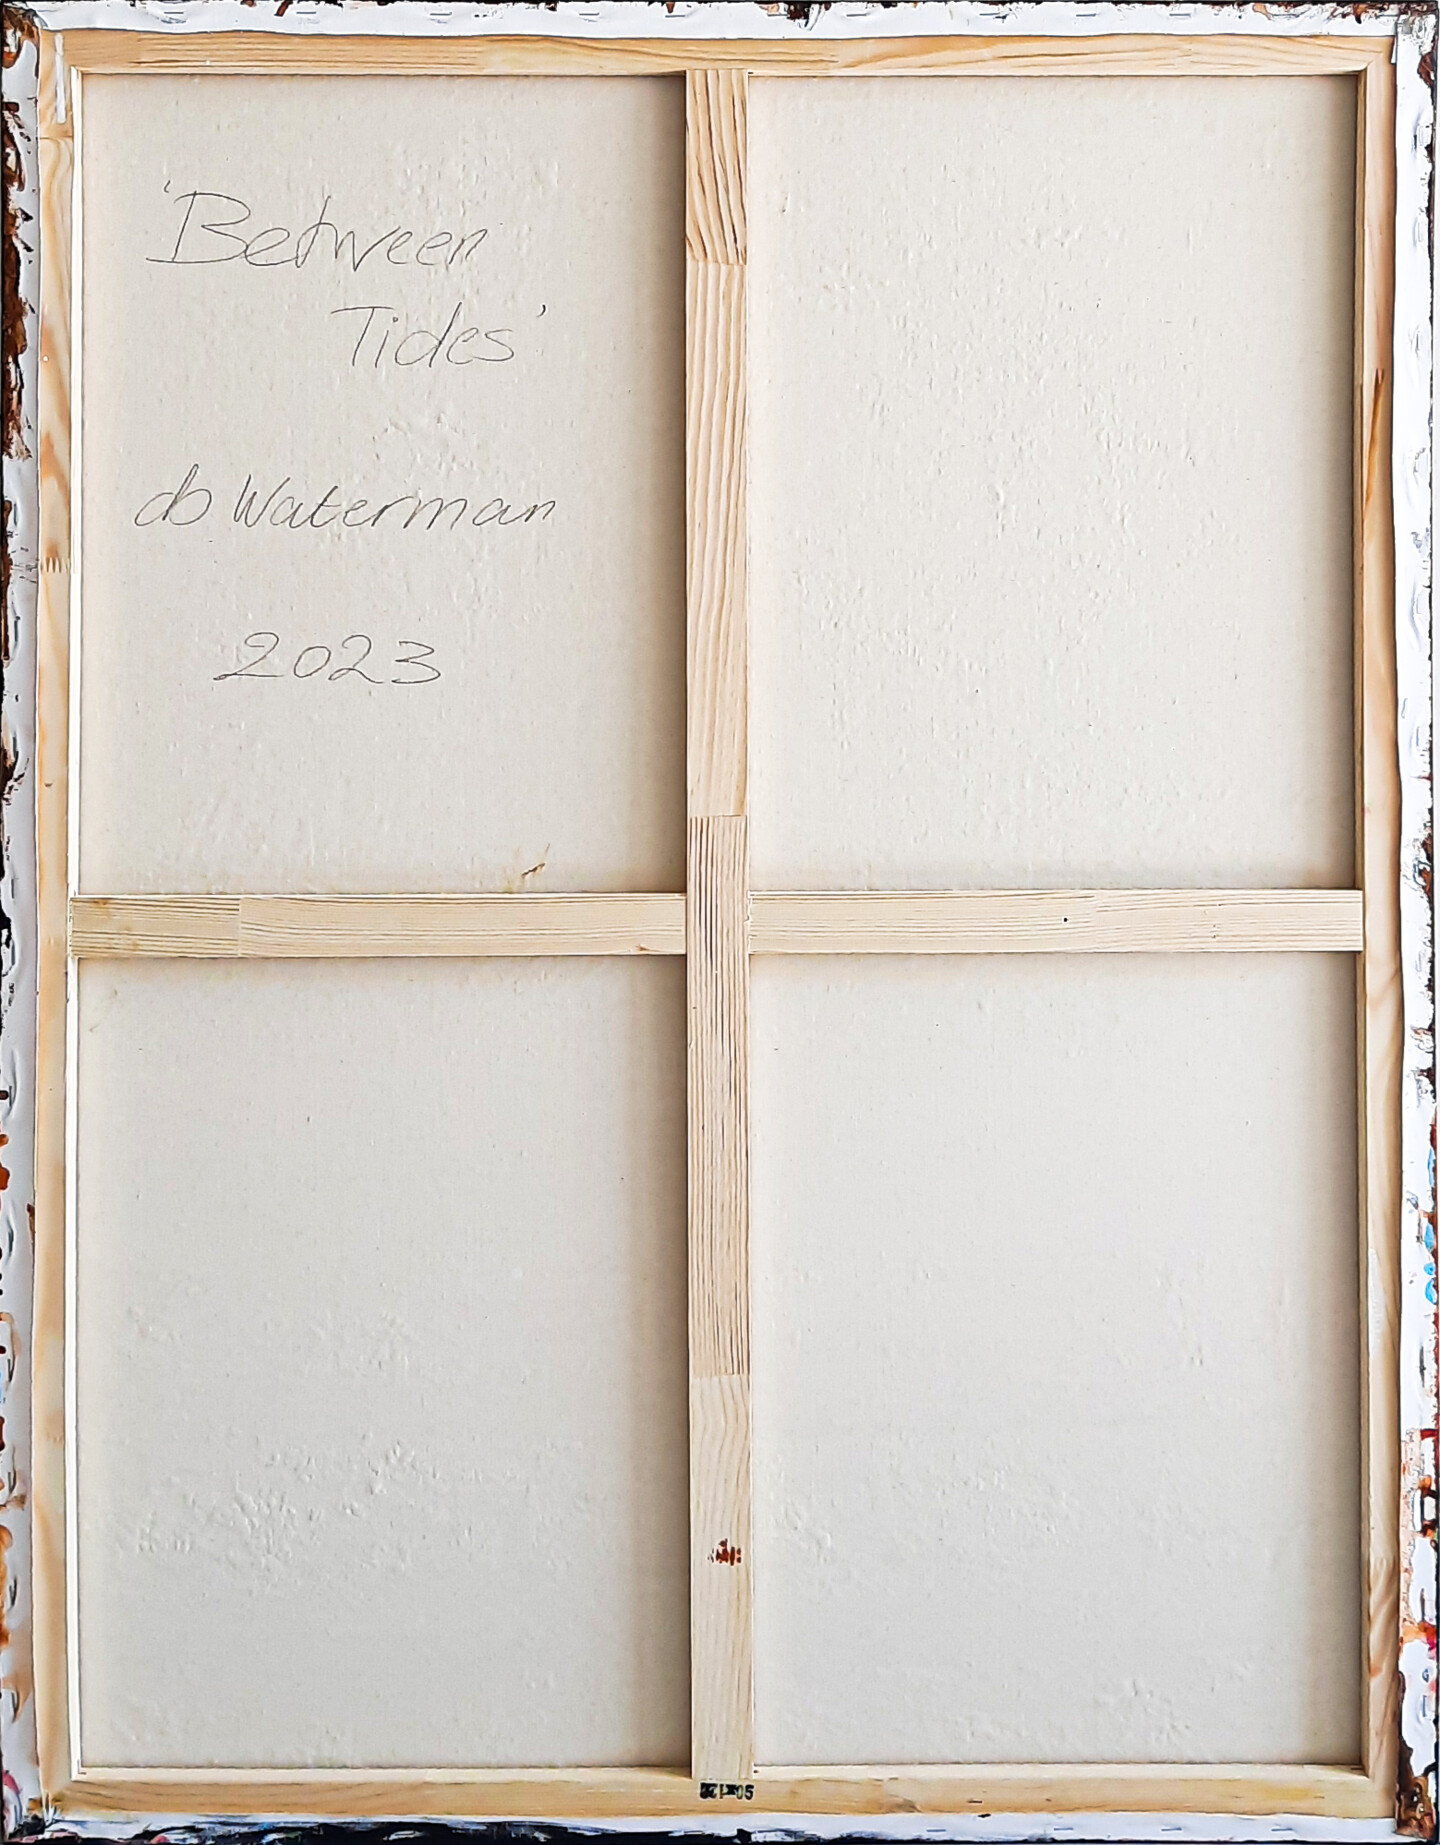 'Between
Tides'
db Waterman
2023